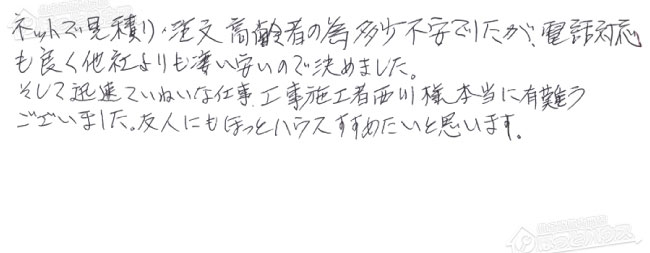 ネットで見積り・注文 高齢者の為多少不安でしたが、電話対応
も良く他社よりも凄い安いので決めました。
そして迅速ていねいな仕事、工事施工者西川様本当に有難う
ございました。友人にもほっとハウスすすめたいと思います。